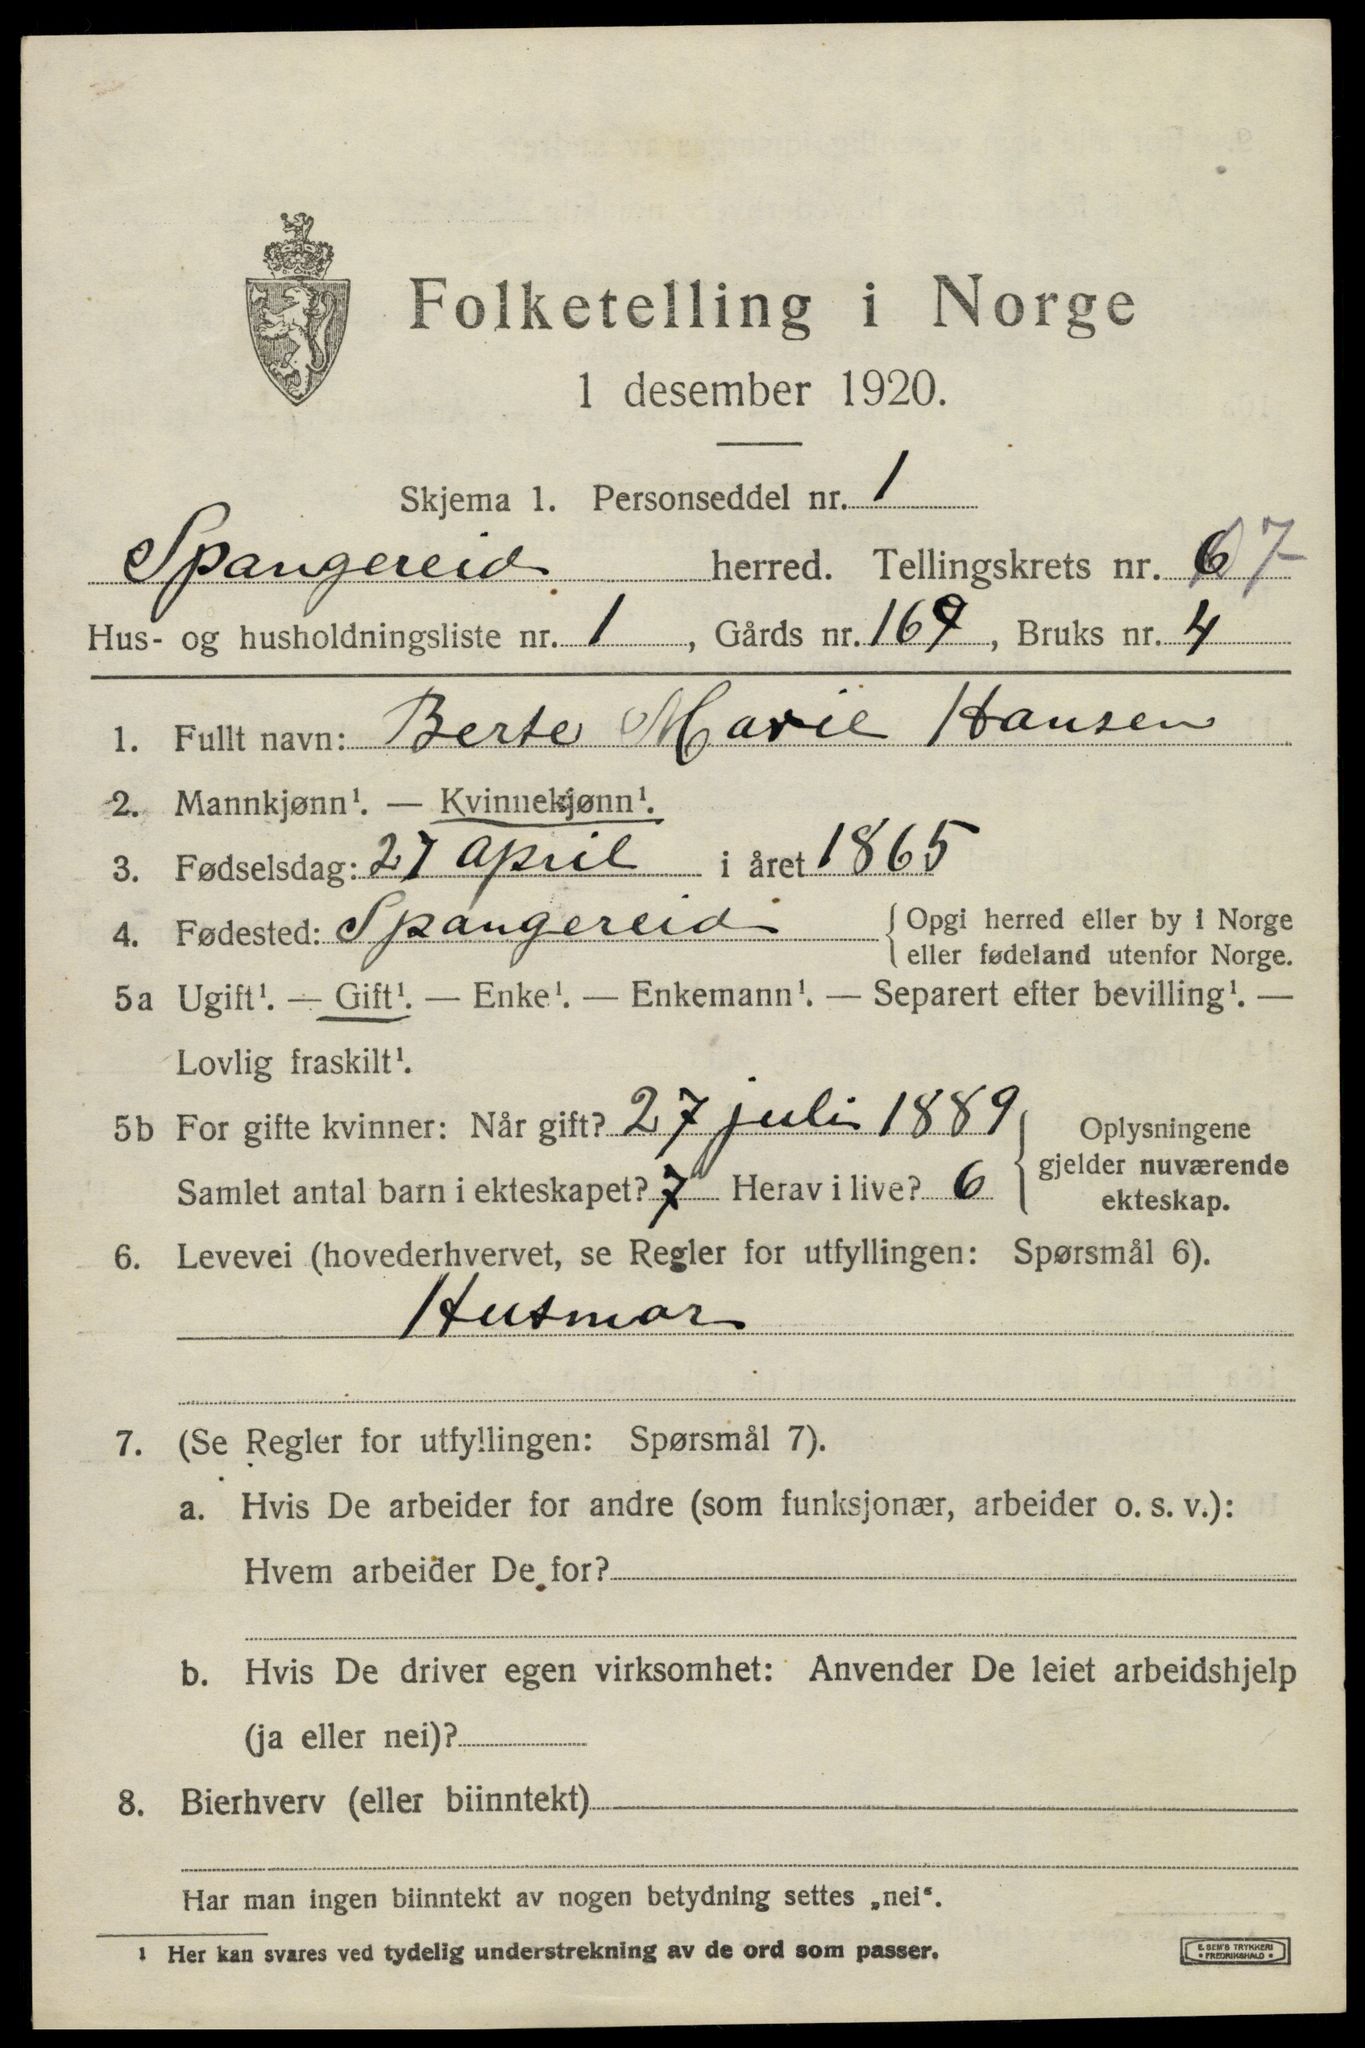 Folketelling i Norge
1 desember 1920.
Skjema 1. Personseddel nr. 1
Spangereid herred. Tellingskrets nr. 6 7
Hus- og husholdningsliste nr. 1, Gårds nr. 169, Bruks nr. 4
1. Fullt navn: Berte Marie Hansen
2. Mannkjønn¹. — Kvinnekjønn¹.
3. Fødselsdag: 27 april i året 1865
4. Fødested: Spangereid { Opgi herred eller by i Norge
eller fødeland utenfor Norge.
5a Ugift¹. — Gift¹. — Enke¹. — Enkemann¹. — Separert efter bevilling¹. —
Lovlig fraskilt¹.
5b For gifte kvinner: Når gift? 27 juli 1889
Samlet antal barn i ekteskapet? 7 Herav i live? 6
Oplysningene
gjelder nuværende
ekteskap.
6. Levevei (hovederhvervet, se Regler for utfyllingen: Spørsmål 6).
Husmor
7. (Se Regler for utfyllingen: Spørsmål 7).
a. Hvis De arbeider for andre (som funksjonær, arbeider o. s. v.):
Hvem arbeider De for?
b. Hvis De driver egen virksomhet: Anvender De leiet arbeidshjelp
(ja eller nei)?
8. Bierhverv (eller biinntekt)
Har man ingen biinntekt av nogen betydning settes „nei“.
¹ Her kan svares ved tydelig understrekning av de ord som passer.
E. SEM'S TRYKKERI
* FREDRIKSHALD *